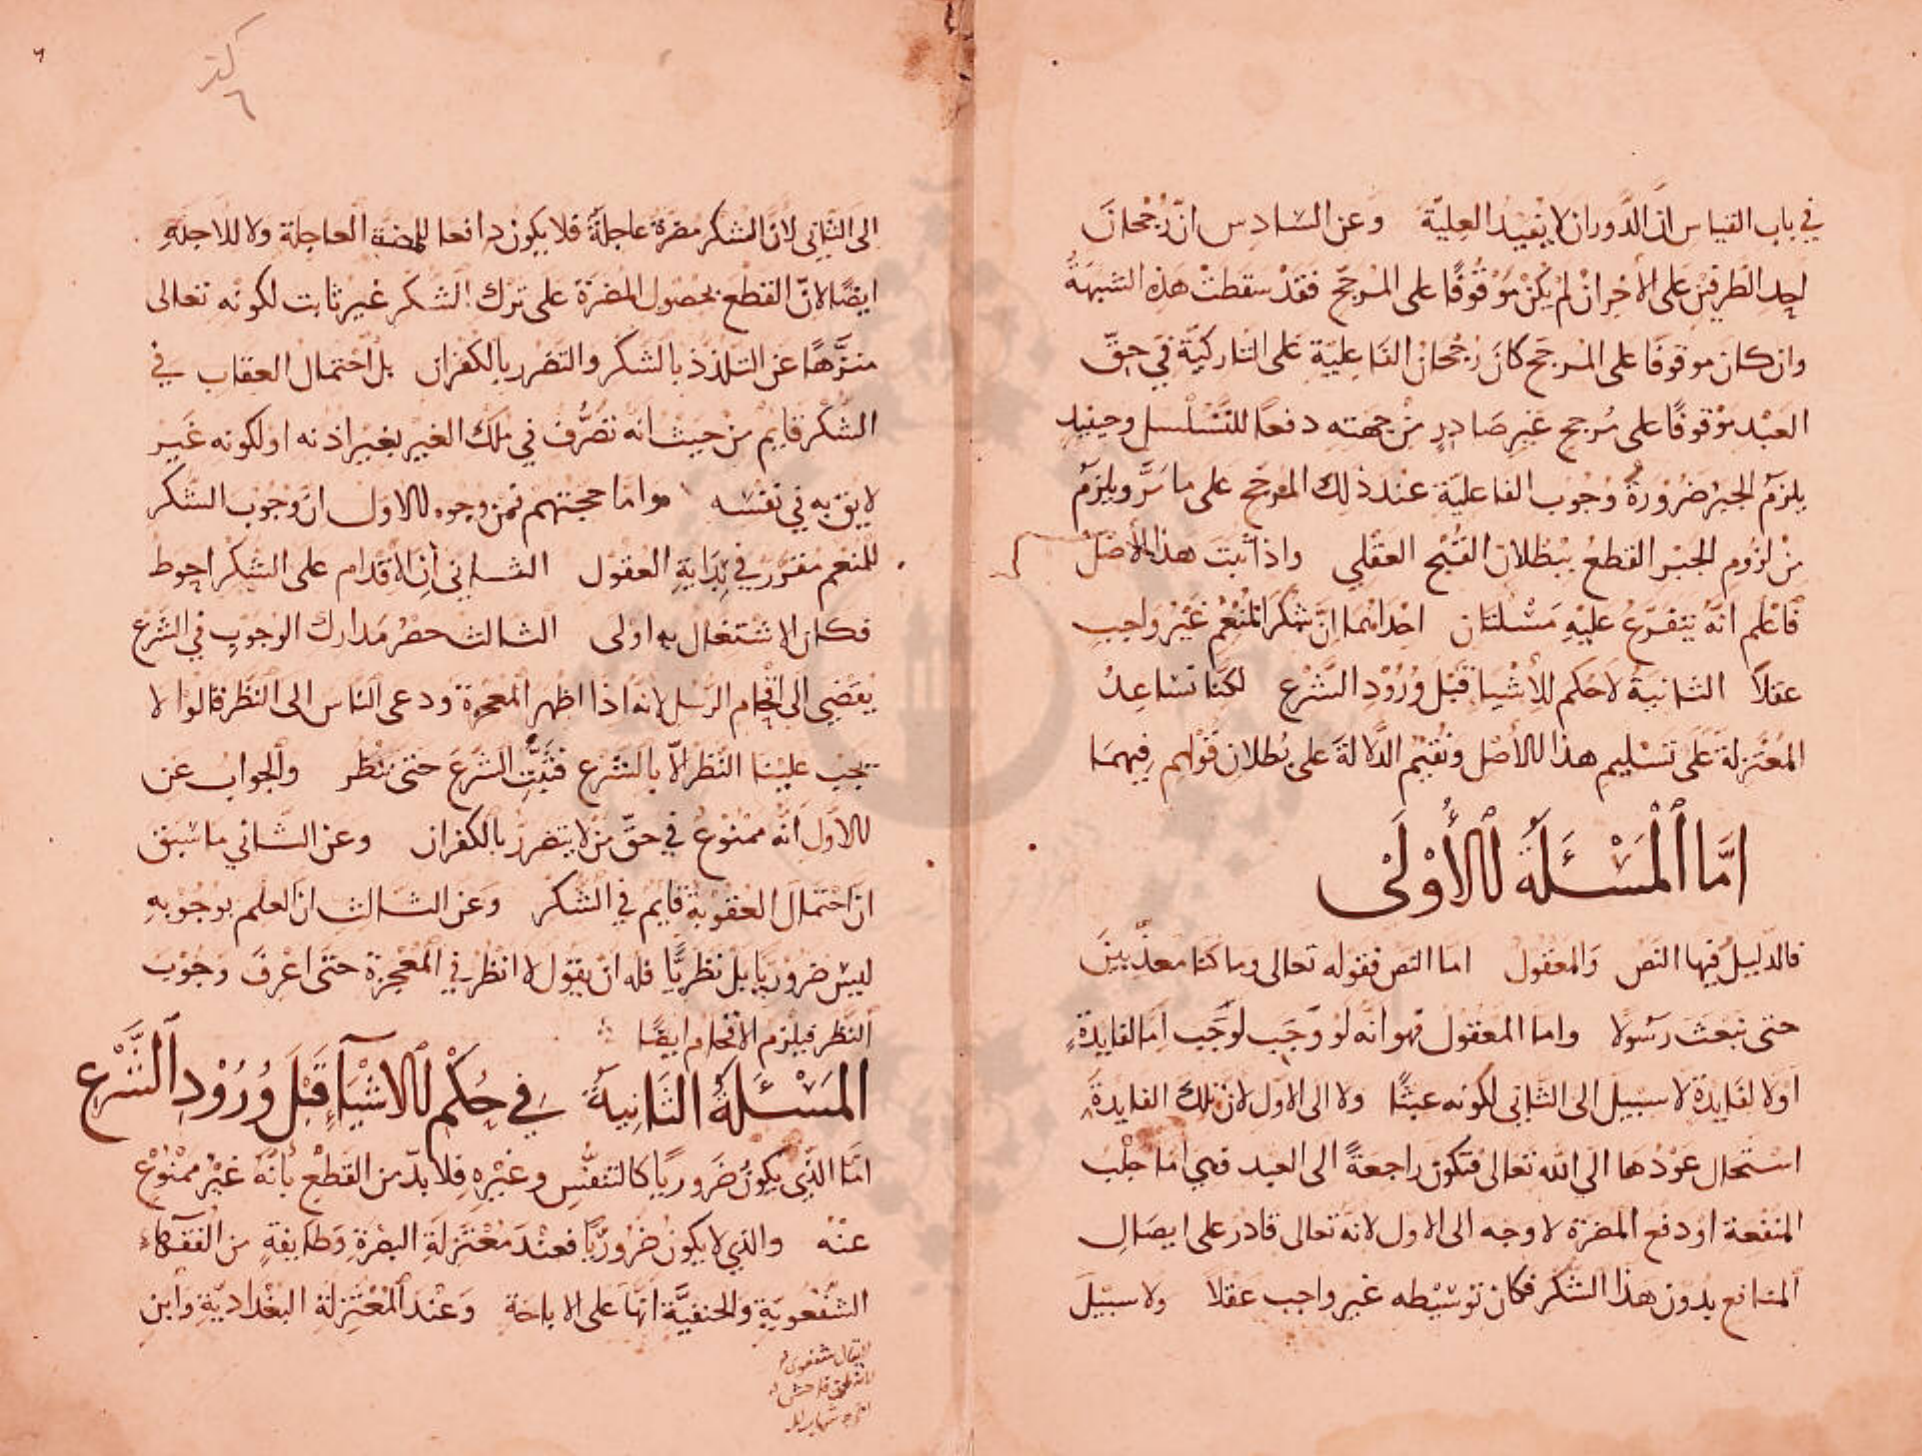 في باب القياس ان الدوران لا يفيد العلية وعن السادس ان رجحان
احد الطرفين على الاخر ان لم يكن موقوفا على المرجح فقد سقطت هذه الشبهة
وان كان موقوفا على المرجح كان رجحان الفاعلية على التاركية في حق
العبد موقوفا على مرجح غير صادر من جهته دفعا للتسلسل وحينيد
يلزم الجبر ضرورة وجوب الفاعلية عند ذلك المرجح على ما مر ويلزم
من لزوم الجبر القطع ببطلان القبح العقلي واذا ثبت هذا الاصل
فاعلم انه يتفرع عليه مسئلتان احداهما ان شكر المنعم غير واجب
عقلا الثانية لا حكم للاشيا قبل ورود الشرع لكنا نساعد
المعتزلة على تسليم هذا الاصل ونقيم الدلالة على بطلان قولهم فيهما
اما المسئلة الاولى
فالدليل فيها النص والمعقول اما النص فقوله تعالى وما كنا معذبين
حتى نبعث رسولا واما المعقول فهو انه لو وجب لوجب اما لفايدة
او لا لفايدة لا سبيل الى الثاني لكونه عبثا ولا الى الاول لان تلك الفايدة
استحال عودها الى الله تعالى فتكون راجعة الى العبد فهي اما جلب
المنفعة او دفع المضرة لا وجه الى الاول لانه تعالى قادر على ايصال
المنافع بدون هذا الشكر فكان توسيطه غير واجب عقلا ولا سبيل
٦
٦
الى الثاني لان الشكر مضرة عاجلة فلا يكون دافعا للمضرة العاجلة ولا للاجلة
ايضا لان القطع بحصول المضرة على ترك الشكر غير ثابت لكونه تعالى
منزها عن التلذذ بالشكر والتضرر بالكفران بل احتمال العقاب في
الشكر قايم من حيث انه تصرف في ملك الغير بغير اذنه او لكونه غير
لايق به في نفسه واما حجتهم فمن وجوه الاول ان وجوب الشكر
للمنعم مقرر في بداية العقول الثاني ان الاقدام على الشكر احوط
فكان الاشتغال به اولى الثالث حصر مدارك الوجوب في الشرع
يفضي الى افحام الرسل لانه اذا اظهر المعجزة ودعى الناس الى النظر قالوا لا
يجب علينا النظر الا بالشرع فثبت الشرع حتى ننظر والجواب عن
الاول انه ممنوع في حق من لا يتضرر بالكفران وعن الثاني ما سبق
ان احتمال العقوبة قايم في الشكر وعن الثالث ان العلم بوجوبه
ليس ضروريا بل نظريا فله ان يقول لا انظر في المعجزة حتى اعرف وجوب
النظر فيلزم الافحام ايضا
المسئلة الثانية في حكم الاشياء قبل ورود الشرع
اما الذي يكون ضروريا كالتنفس وغيره فلا بد من القطع بانه غير ممنوع
عنه والذي لا يكون ضروريا فعند معتزلة البصرة وطايفة من الفقهاء
الشفعوية والحنفية انها على الاباحة وعند المعتزلة البغدادية وابن